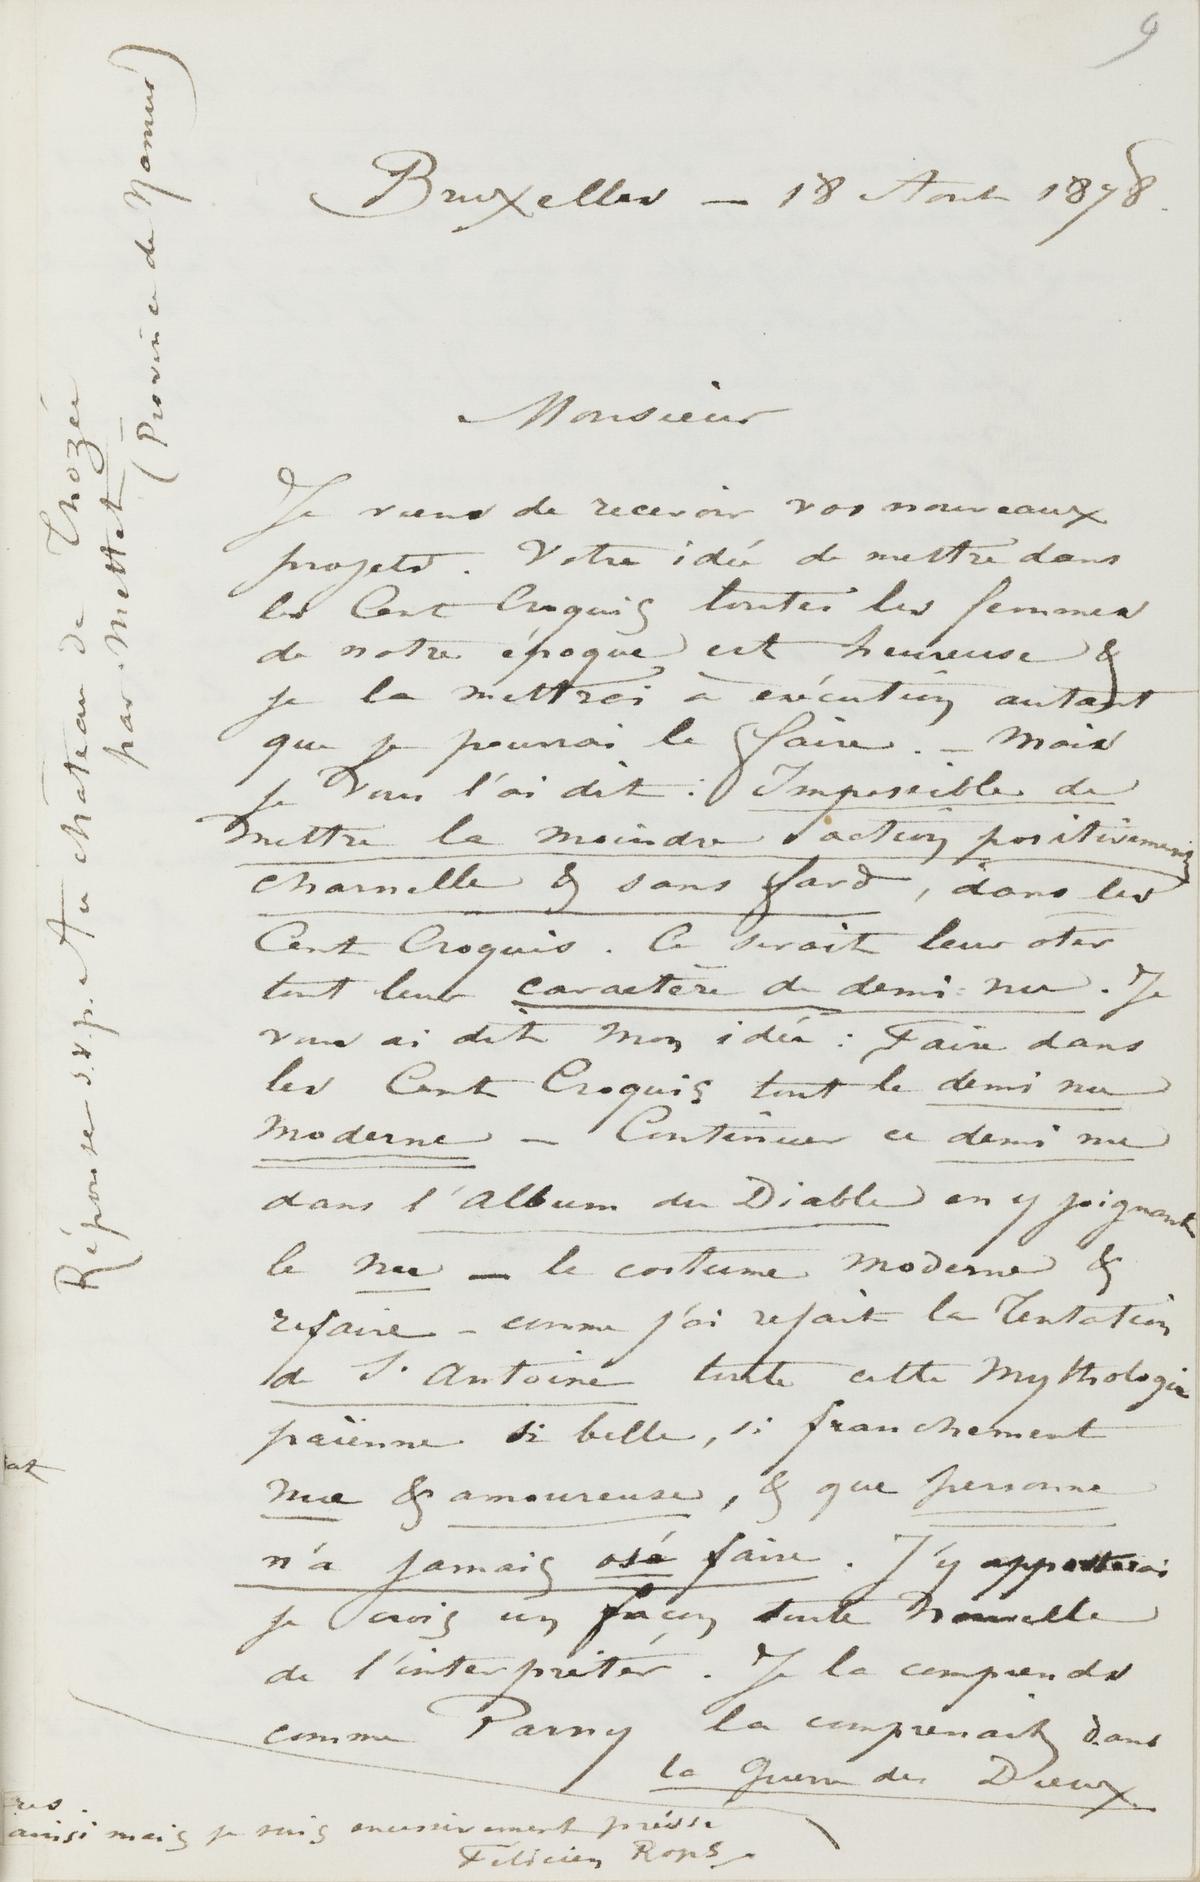 9
Bruxelles — 18 Aout 1878.
Monsieur
Je viens de recevoir vos nouveaux
projets. Votre idée de mettre dans
les Cent Croquis toutes les femmes
de notre époque est heureuse &
je la mettrai à exécution autant
que je pourrai le faire. — Mais
je vous l'ai dit : Impossible de
mettre la moindre action positivement
charnelle & sans fard, dans les
Cent Croquis. Ce serait leur oter
tout leur caractère de demi-nu. Je
vous ai dit mon idée : Faire dans
les Cent Croquis tout le demi nu
Moderne — Continuer ce demi nu
dans l'Album du Diable en y joignant
le nu — le costume moderne &
refaire — comme j'ai refait la Tentation
de St Antoine toute cette Mythologie
païenne si belle, si franchement
nue & amoureuse, & que personne
n'a jamais osé faire. J'y apporterai
je crois un façon toute nouvelle
de l'interpréter. Je la comprends
comme Parny la comprenait dans
la Guerre des Dieux
ainsi mais je suis excessivement pressé
Félicien Rops
Réponse s.v.p. Au château de Thozée
par Mettet —
(Province de Namur)